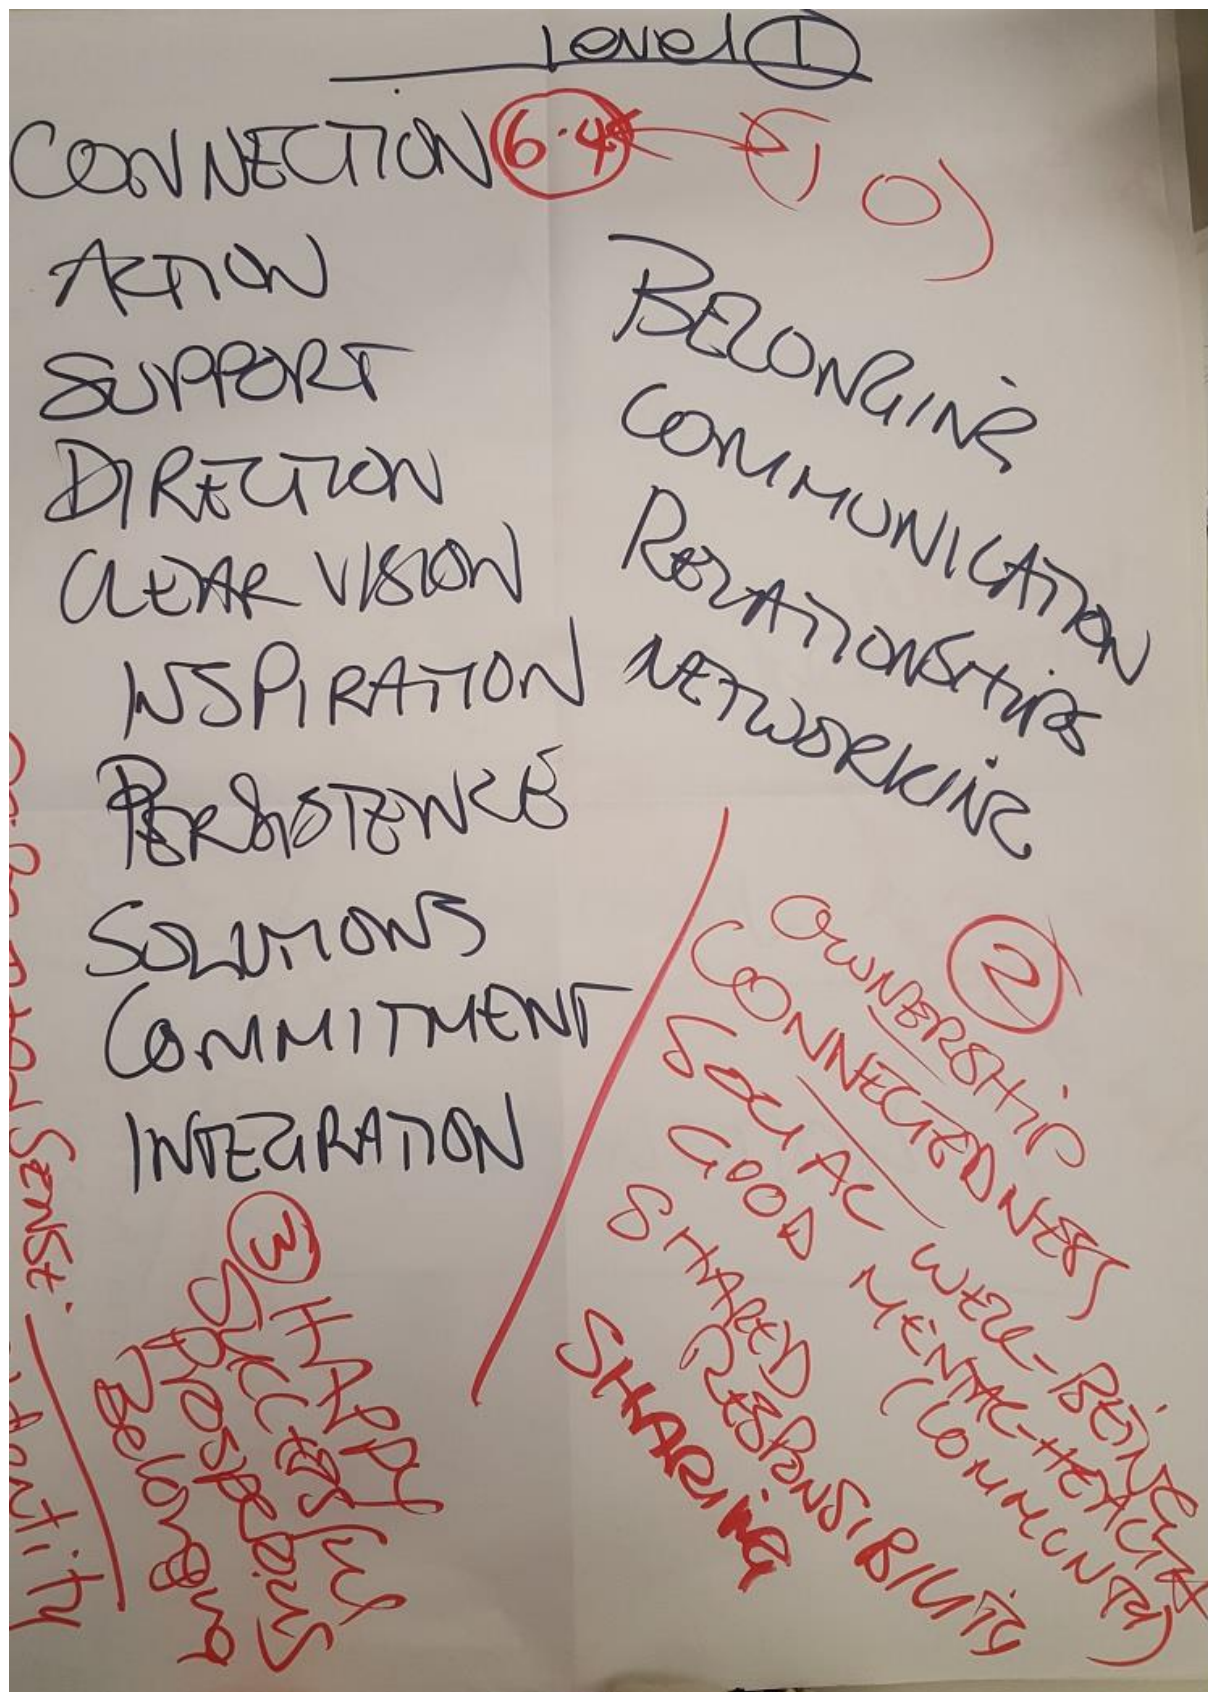 Level 1
CONNECTION 6.4 (10)
ACTION
SUPPORT
DIRECTION
CLEAR VISION
INSPIRATION
PERSISTENCE
SOLUTIONS
COMMITMENT
INTEGRATION
BELONGING
COMMUNICATION
RELATIONSHIPS
NETWORKING
2
OWNERSHIP
CONNECTEDNESS
SOCIAL WELL-BEING
GOOD MENTAL-HEALTH
(COMMUNITY)
SHARED RESPONSIBILITY
SHARING
3
HAPPY
Successful
Prosperous
Belonging
SENSE.